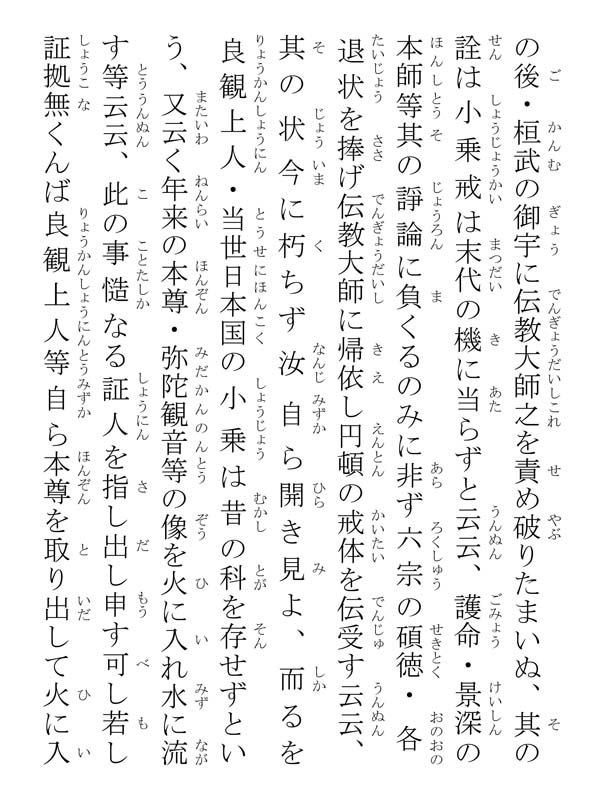 の後・桓武の御宇に伝教大師之を責め破りたまいぬ、其の
詮は小乗戒は末代の機に当らずと云云、護命・景深の
本師等其の諍論に負くるのみに非ず六宗の碩徳・各
退状を捧げ伝教大師に帰依し円頓の戒体を伝受す云云、
其の状今に朽ちず汝自ら開き見よ、而るを
良観上人・当世日本国の小乗は昔の科を存せずとい
う、又云く年来の本尊・弥陀観音等の像を火に入れ水に流
す等云云、此の事慥なる証人を指し出し申す可し若し
証拠無くんば良観上人等自ら本尊を取り出して火に入